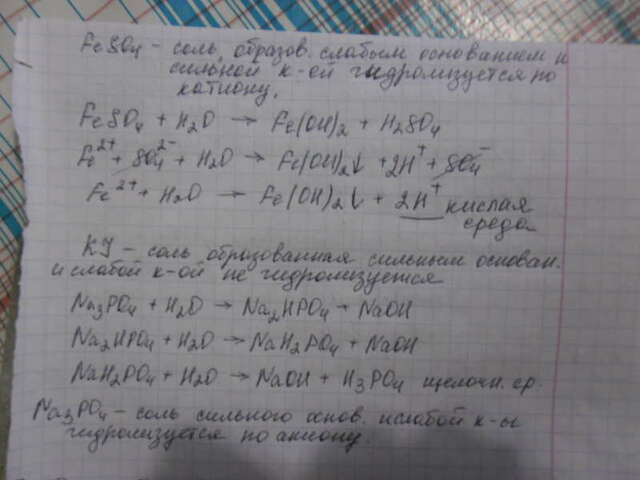 FeSO4 - соль, образов. слабым основанием и
сильной к-ой гидролизуется по
катиону.
FeSO4 + H2O → Fe(OH)2 + H2SO4
Fe²⁺ + SO4²⁻ + H2O → Fe(OH)2↓ + 2H⁺ + SO4⁻
Fe²⁺ + H2O → Fe(OH)2↓ + 2H⁺ кислая
среда
КУ - соль образованная сильным основан.
и слабой к-ой не гидролизуется
Na3PO4 + H2O → Na2HPO4 + NaOH
Na2HPO4 + H2O → NaH2PO4 + NaOH
NaH2PO4 + H2O → NaOH + H3PO4 щелочн. ср.
Na3PO4 - соль сильного основ. и слабой к-ы
гидролизуется по аниону.